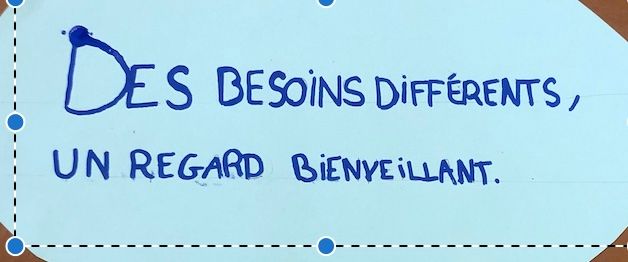 DES BESOINS DIFFÉRENTS,
UN REGARD BIENVEILLANT.